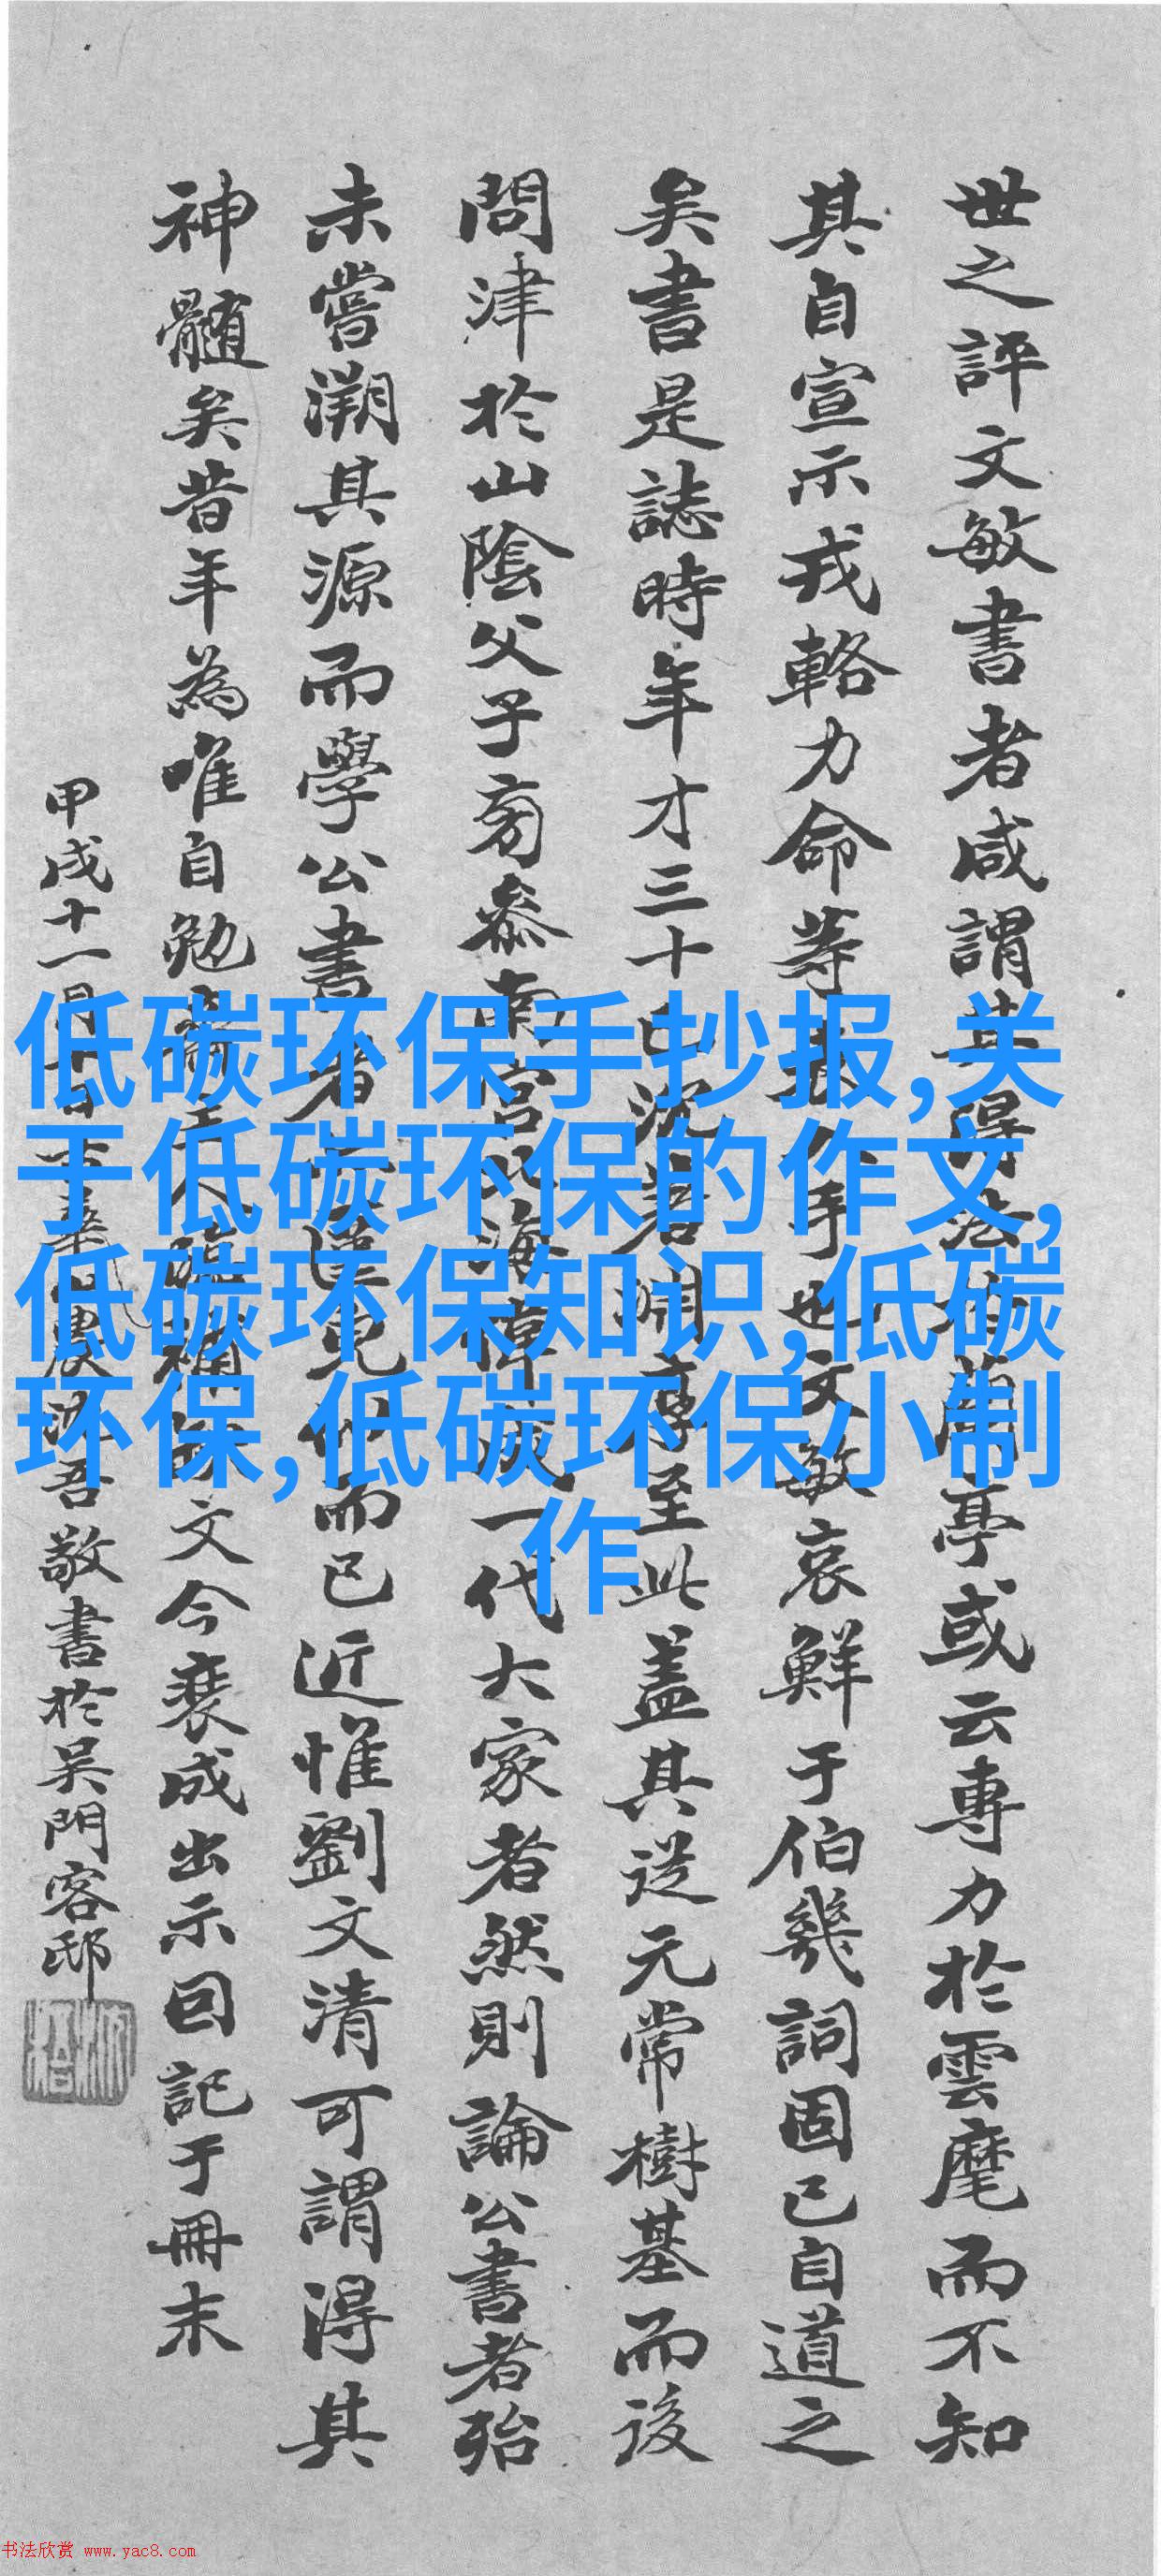 世之評文敏書者咸謂其得法於蘭亭或云專力於雲麾而不知
其自宣示戎輅力命等表入手也文敏哀鮮于伯幾詞固已自道之
矣書是誌時年才三十已沈著淵專至此蓋其從元常樹基而後
問津於山陰父子旁參南宮北海偉成一代大家者然則論公書者殆
未嘗溯其源而學公書者僅見而已近惟劉文清可謂得其
神髓矣昔年為唯自勉齋主人臨補文今裝成出示回記于冊末
甲戌十一月吾敬書於吳門客邸
低碳环保手抄报,关
于低碳环保的作文,
低碳环保知识,低碳
环保,低碳环保小制
作
书法欣赏 www.yac8.com